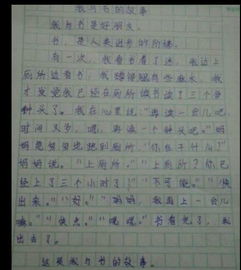 我与书的故事
我与书是好朋友。
书，是人类进步的阶梯。
有一次，我看书看了迷，我边上
厕所边看书，我蹲得腿都麻木，我
才发觉我已经在厕所读书读了三个
种头了。我在心里说：“再读一会儿吧，
时间又多，嗯，再读一个钟头吧。”妈
妈急匆匆地想到厕所，“你在干什么？”
妈妈说。“上厕所。”“上厕所？你已
经上了三个小时了！”“不可能。”“快
出来。”“好。”“妈妈，我再上一会儿
嘛。”“快点。”“嗯嗯。”书看完了，我
出去了。
这是我与书的故事。